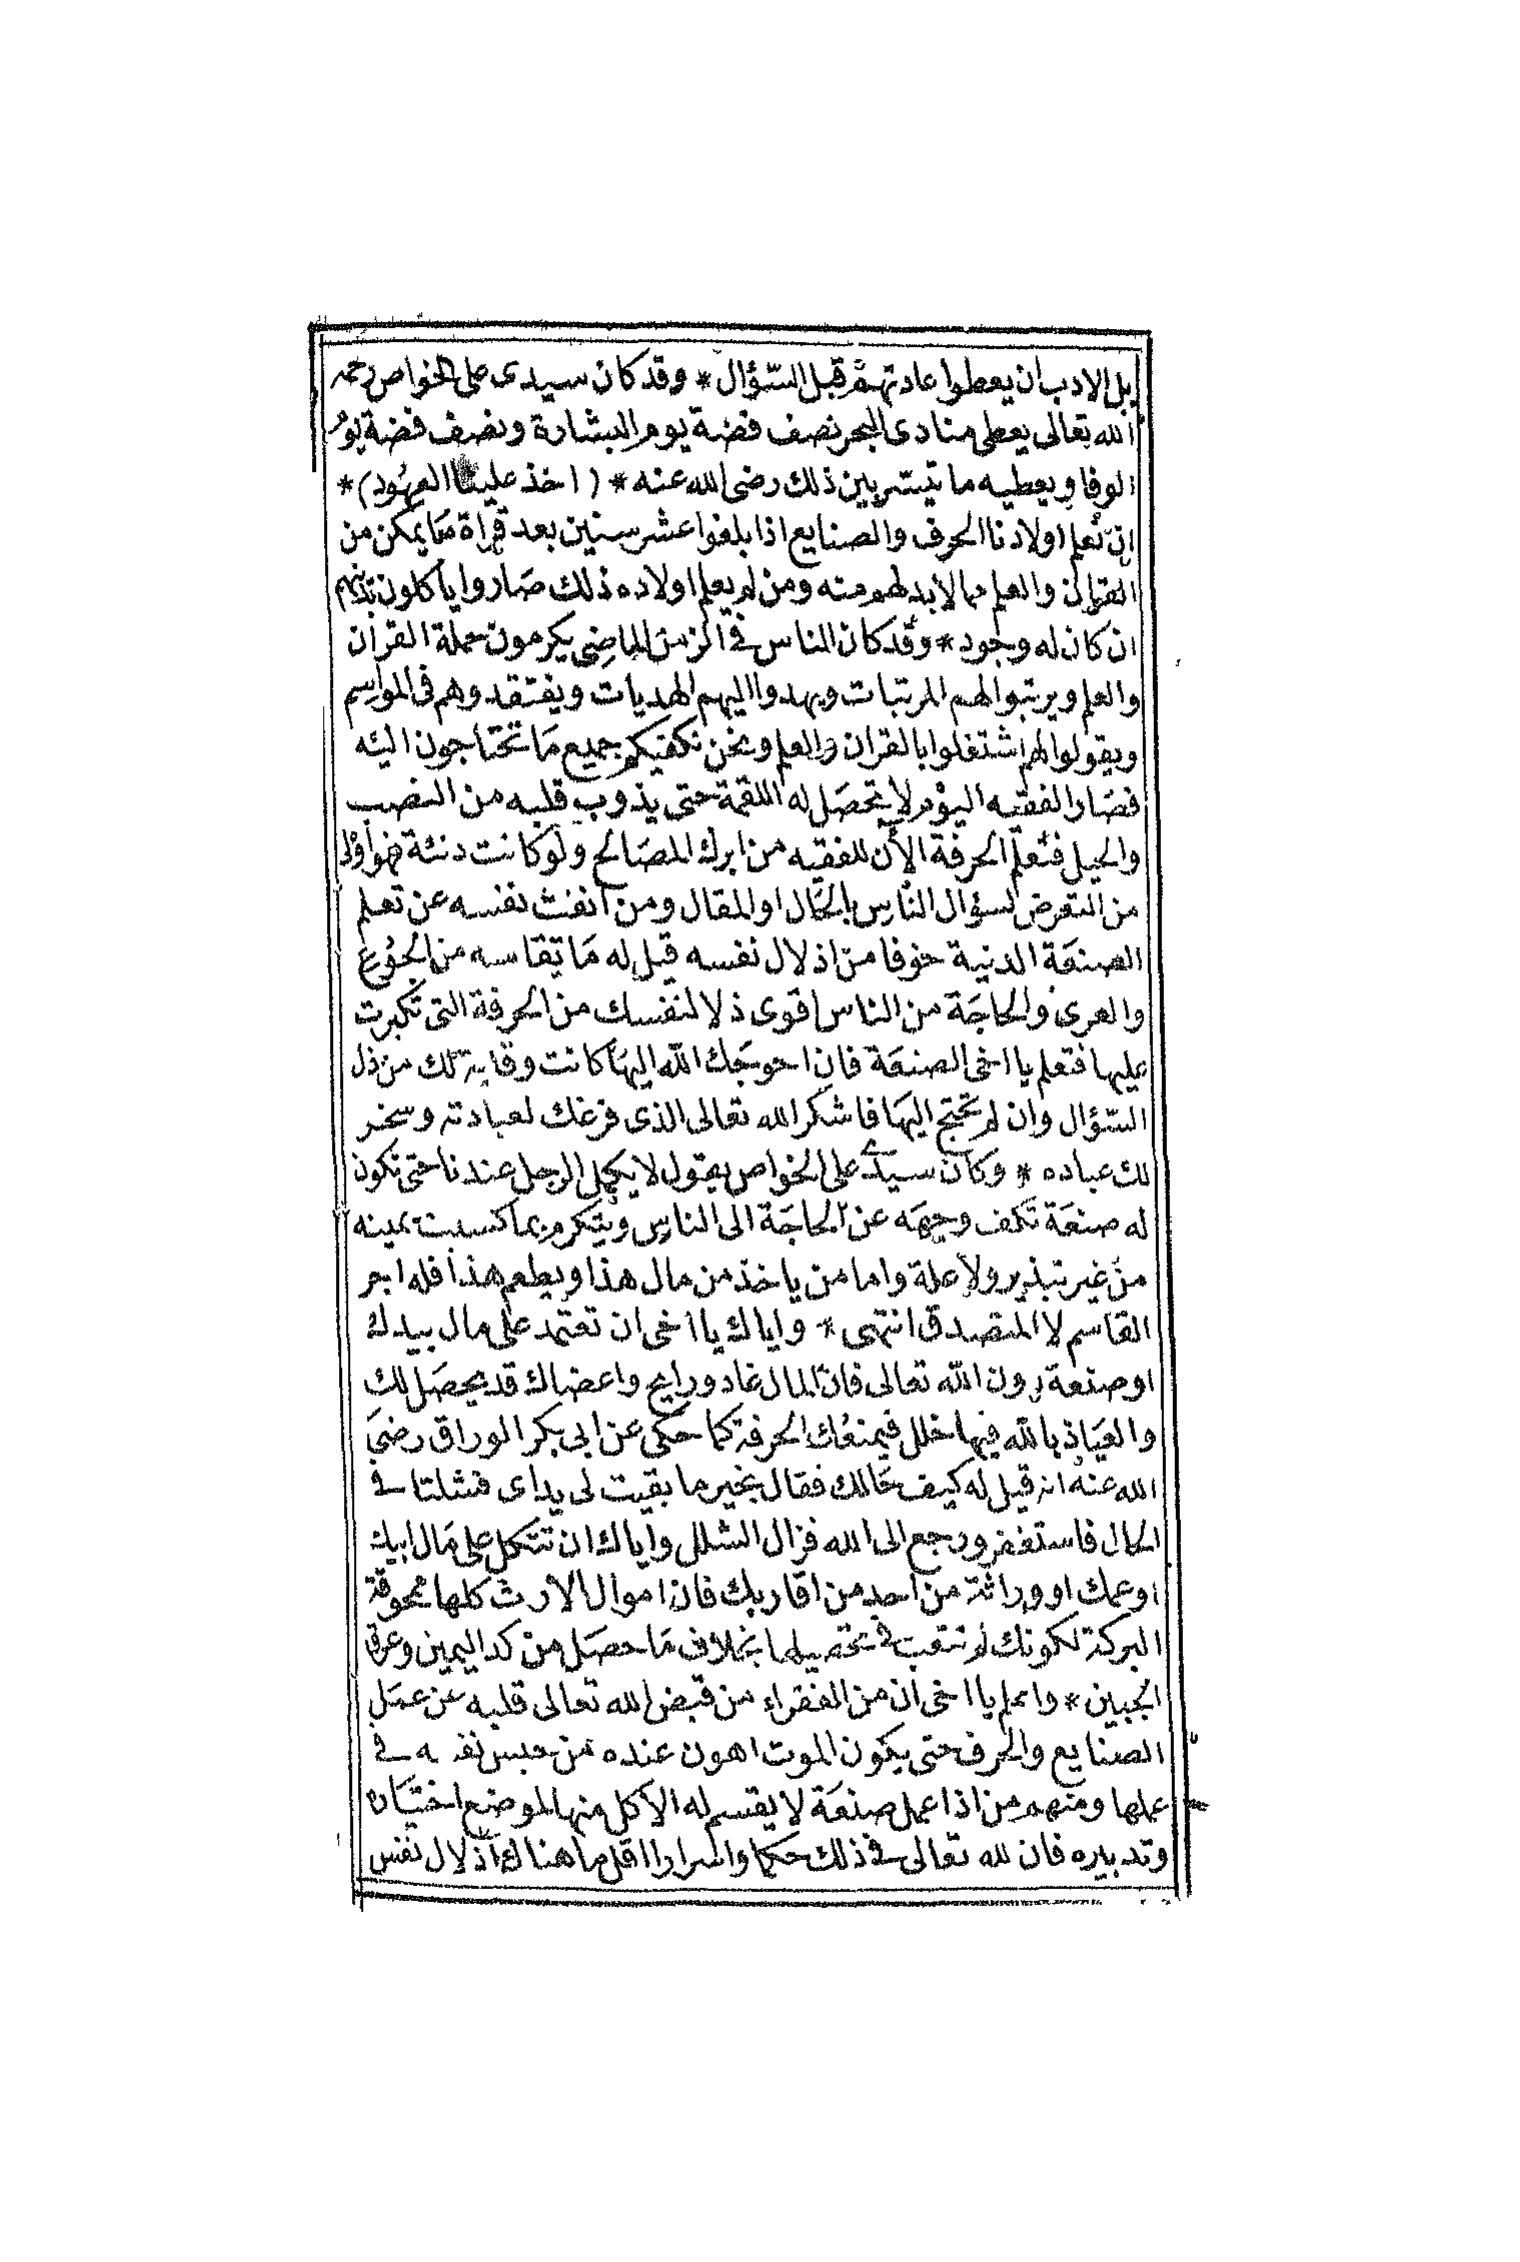 بل الادب ان يعطوا عادتهم قبل السّؤال * وقد كان سيدى على الخواص رحمه
الله تعالى يعطى منادى البحر نصف فضة يوم البشارة ونصف فضة يوم
الوفا ويعطيه ما تيسر بين ذلك رضى الله عنه * ( اخذ علينا العهود ) *
ان نعلم اولادنا الحرف والصنايع اذا بلغوا عشر سنين بعد قراة ما يمكن من
القران والعلم مما لا بد لهم منه ومن لم يعلم اولاده ذلك صاروا ياكلون بدينهم
ان كان له وجود * وقد كان الناس فى الزمن الماضى يكرمون حملة القران
والعلم ويرتبوا لهم المرتبات ويهدوا اليهم الهديات ويفتقدوهم فى المواسم
ويقولوا لهم اشتغلوا بالقران والعلم ونحن نكفيكم جميع ما تحتاجون اليه
فصار الفقيه اليوم لا يتحصل له اللقمة حتى يذوب قلبه من النصب
والحيل فتعلم الحرفة الأن للفقيه من ابرك المصالح ولو كانت دنئة فهو اولى
من التعرض لسؤال الناس بالحال او المقال ومن انفت نفسه عن تعلم
الصنعة الدنية خوفا من اذلال نفسه قيل له ما تقاسه من الجوع
والعرى والحاجة من الناس اقوى ذلا لنفسك من الحرفة التى تكبرت
عليها فتعلم يا اخى الصنعة فان احوجك الله اليها كانت وقاية لك من ذل
السّؤال وان لم تحتج اليها فاشكر الله تعالى الذى فرغك لعبادته وسخر
لك عباده * وكان سيدى على الخواص يقول لا يكمل الرجل عندنا حتى تكون
له صنعة تكف وجهه عن الحاجة الى الناس ويتكرم بما كسبت يمينه
من غير تبذير ولا علة واما من ياخذ من مال هذا ويطعم هذا فله اجر
القاسم لا المتصدق انتهى * واياك يا اخى ان تعتمد على مال بيدك
او صنعة دون الله تعالى فان المال غاد ورايح واعضاك قد يحصل لك
والعياذ بالله فيها خلل فيمنعك الحرفة كما حكى عن ابى بكر الوراق رضى
الله عنه انه قيل له كيف حالك فقال بخير ما بقيت لى يداى فشلتا فى
الحال فاستغفر ورجع الى الله فزال الشلل واياك ان تتكل على مال ابيك
او عمك او وراثة من احد من اقاربك فان اموال الارث كلها ممحوقة
البركة لكونك لم تتعب فى تحصيلها بخلاف ما حصل من كد اليمين وعرق
الجبين * واعلم يا اخى ان من الفقراء من قبض الله تعالى قلبه عن عمل
الصنايع والحرف حتى يكون الموت اهون عنده من حبس نفسه فى
عملها ومنهم من اذا عمل صنعة لا يقسم له الاكل منها لموضع اختياره
وتدبيره فان لله تعالى فى ذلك حكما واسرارا اقل ما هناك اذلال نفس